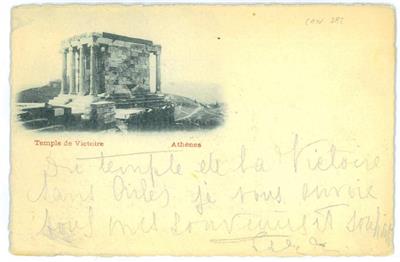 CON 282
Temple de Victoire Athènes
Du temple de la Victoire
sans Ailes je vous envoie
tous mes souvenirs et